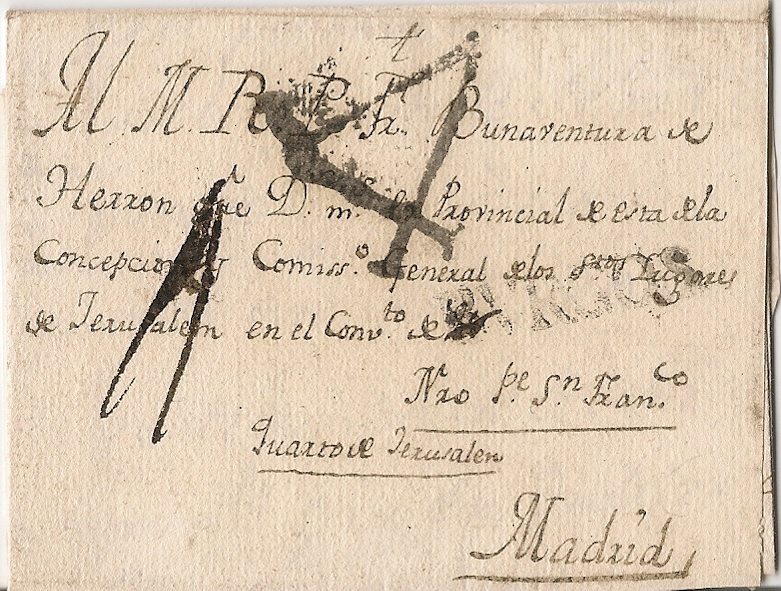 Al M. R. P. Fr. Bunaventura de
Herron que D. m. Ex Provincial de esta de la
Concepcion y Comiss.º General de los Stos Lugares
de Jerusalem en el Conv.to de
Nro P.e S.n Fran.co
Quarto de Jerusalen
Madrid